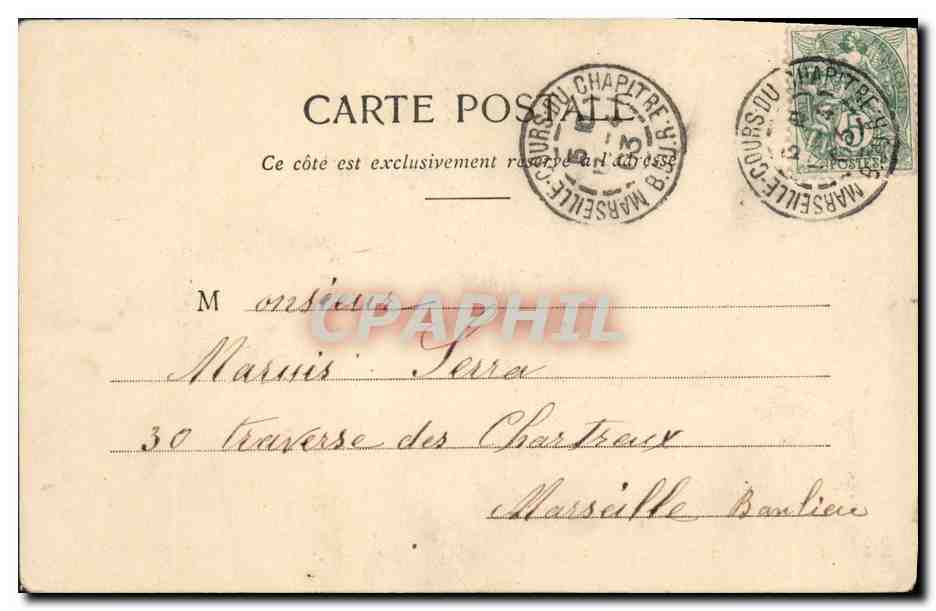 CARTE POSTALE
Ce côté est exclusivement réservé à l'adresse
MARSEILLE-COURS-DU CHAPITRE-B.DU.R.
03
MARSEILLE-COURS-DU CHAPITRE-B.DU.R.
5
POSTES
CPAPHIL
Monsieur
Marius Serra
30 traverse des Chartreux
Marseille Banlieu